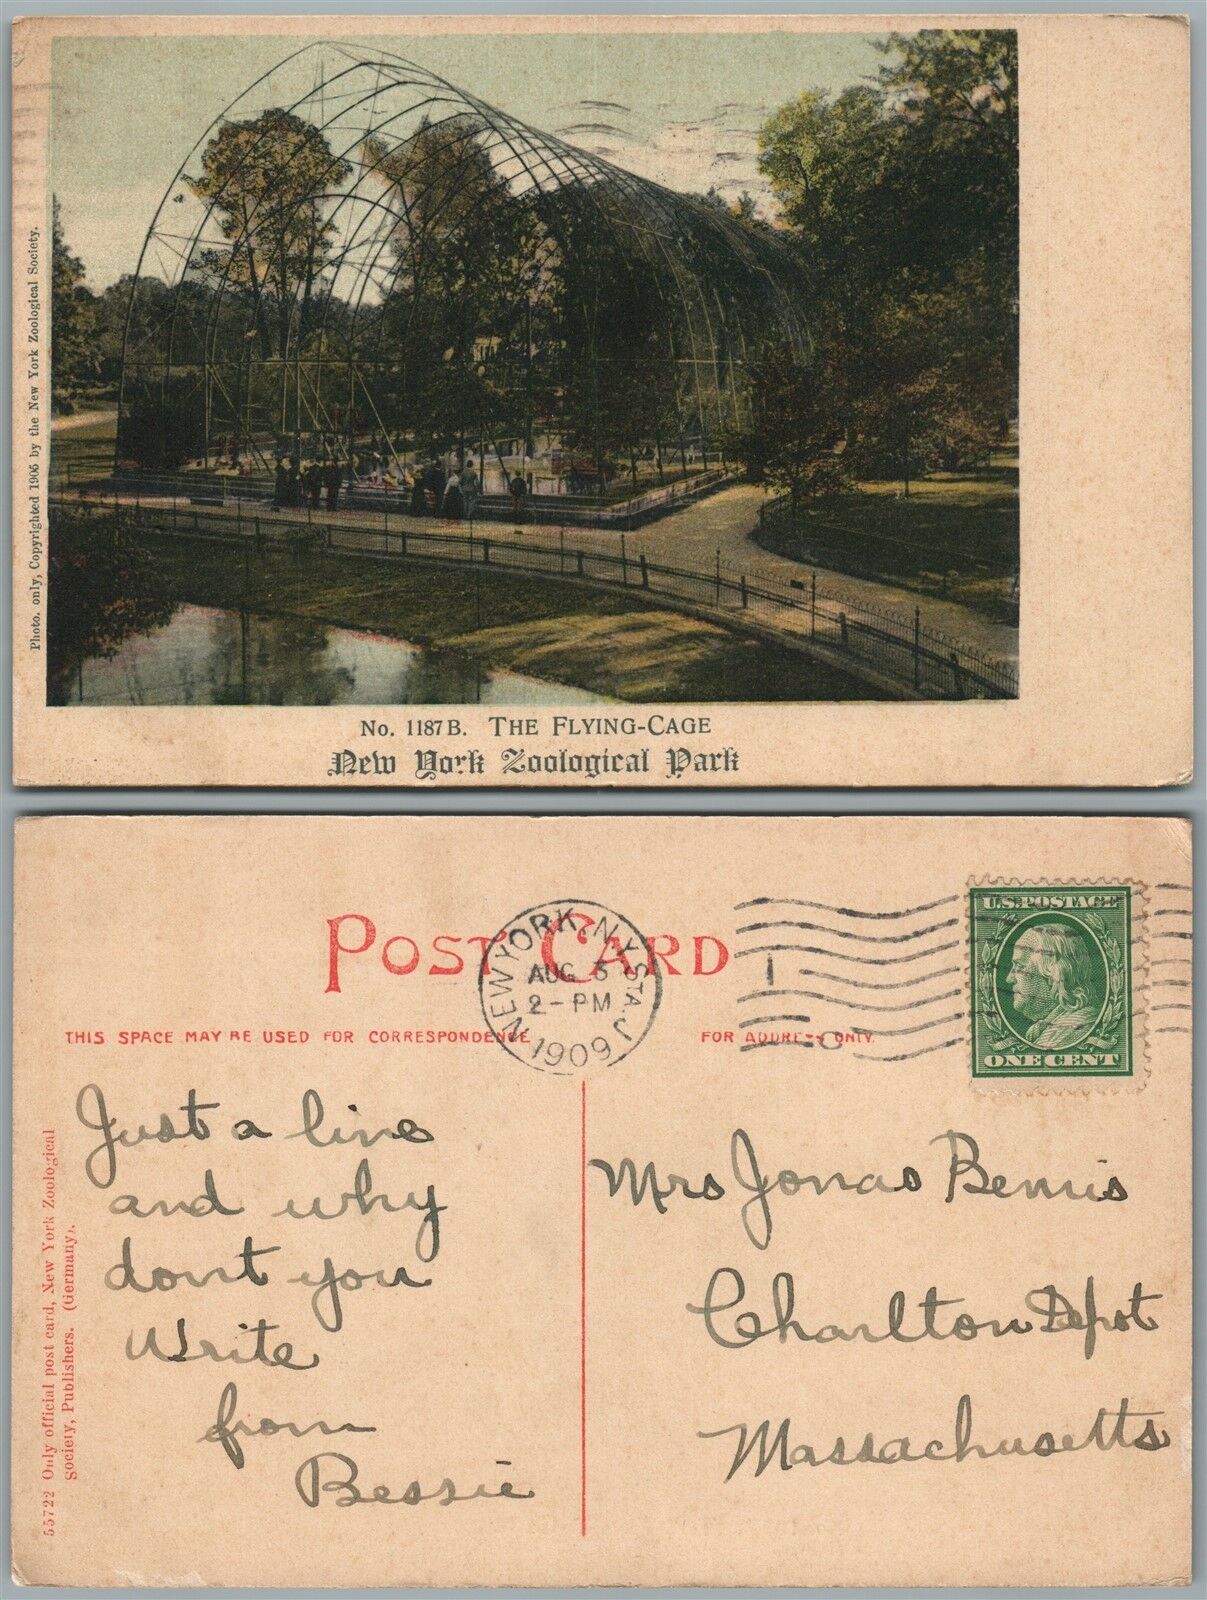 Photo. only, Copyrighted 1905 by the New York Zoological Society.
No. 1187B. THE FLYING-CAGE
New York Zoological Park
POST CARD
NEW YORK, N.Y. STA. J
AUG 3
2-PM
1909
U.S. POSTAGE
ONE CENT
THIS SPACE MAY BE USED FOR CORRESPONDENCE
FOR ADDRESS ONLY
55722 Only official post card, New York Zoological
Society, Publishers. (Germany).
Just a line
and why
dont you
write
from
Bessie
Mrs Jonas Bemis
Charlton Depot
Massachusetts